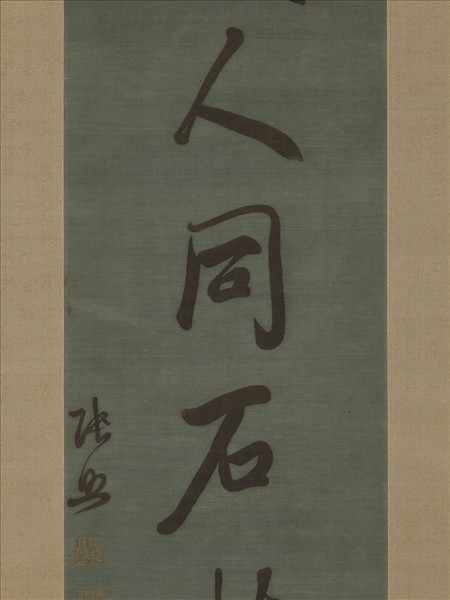 人同石
張照